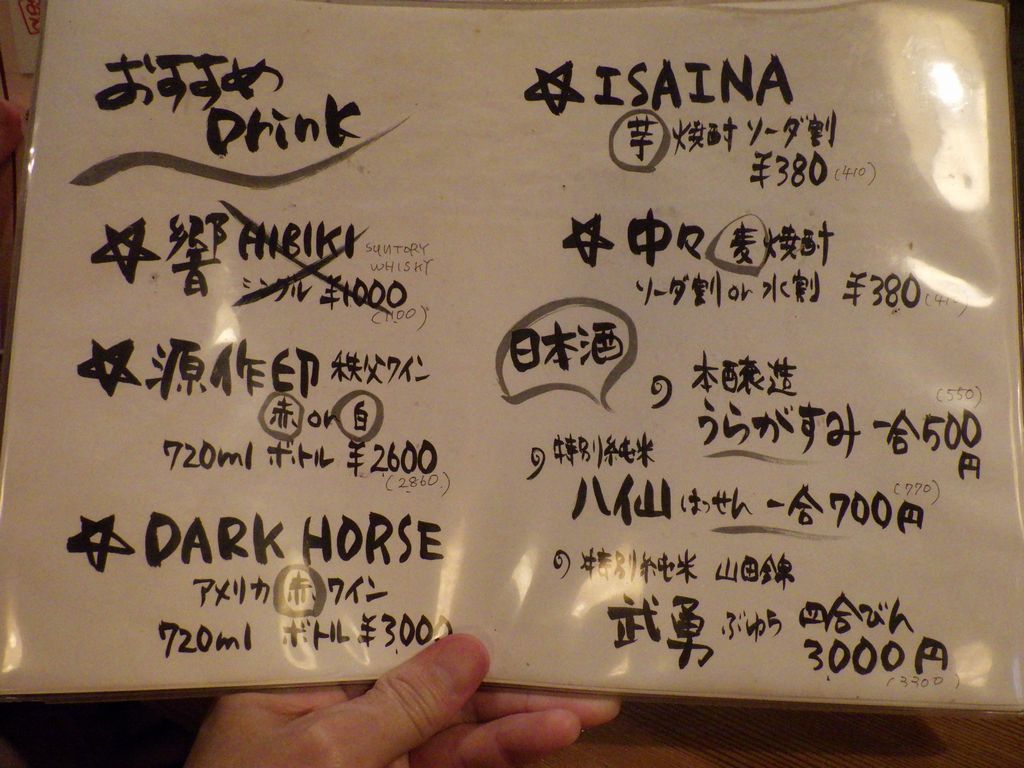 おすすめ
Drink
☆ 響 HIBIKI SUNTORY
WHISKY
シングル ¥1000
(1100)
☆ 源作印 秩父ワイン
赤 or 白
720ml ボトル ¥2600
(2860)
☆ DARK HORSE
アメリカ 赤 ワイン
720ml ボトル ¥3000
☆ ISAINA
芋 焼酎 ソーダ割
¥380 (410)
☆ 中々 麦 焼酎
ソーダ割 or 水割 ¥380
日本酒
本醸造
(550)
うらがすみ 一合 500
円
特別純米
(770)
八仙 はっせん 一合 700円
特別純米 山田錦
武勇 ぶゆう 四合びん
3000円
(3300)